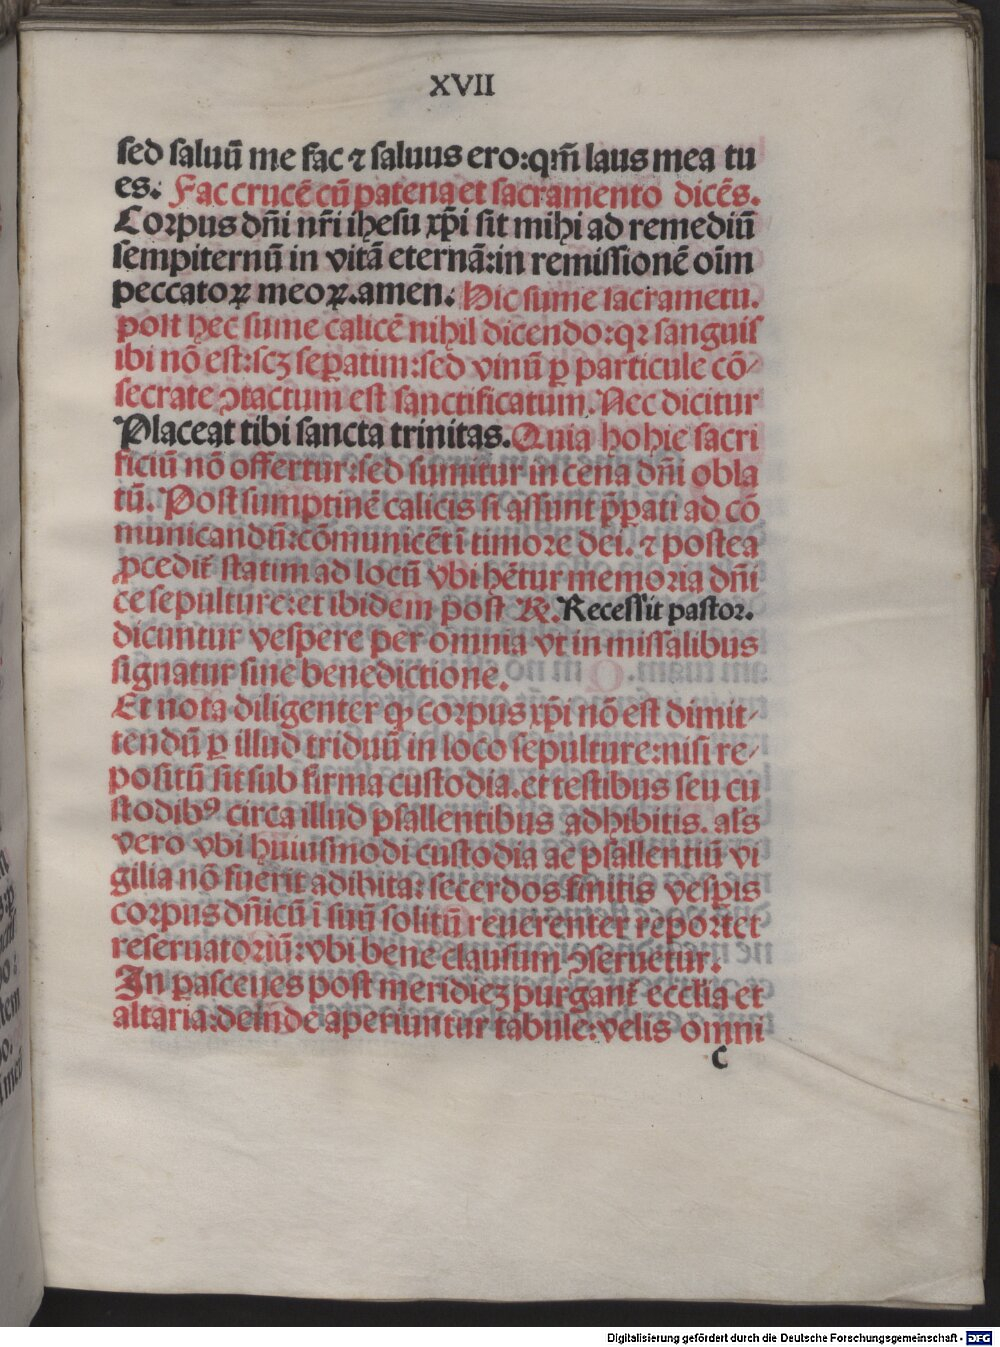 XVII
sed saluū me fac ⁊ saluus ero:qm̄ laus mea tu
es. Fac crucē cū patena et sacramento dicēs.
Corpus dn̄i nr̄i ihesu xp̄i sit mihi ad remediū
sempiternū in vitā eternā:in remissionē oīm
peccatoꝝ meoꝝ.amen. Hic sume sacrametū.
post hec sume calicē nihil dicendo:qꝛ sanguis
ibi nō est:scꝫ sep̄atim:sed vinū ꝑ particule cō⸗
secrate ↄtactum est sanctificatum. Nec dicitur
Placeat tibi sancta trinitas.Quia hohie sacri
ficiū nō offertur:sed sumitur in cena dn̄i obla
tū. Post sumptinē calicis si assunt p̄pati ad cō
municandū:cōmunicēt ī timore dei. ⁊ postea
ꝓcedit̄ statim ad locū vbi hētur memoria dn̄i
ce sepulture:et ibidem post ℟.Recessit pastor.
dicuntur vespere per omnia vt in missalibus
signatur sine benedictione.
Et nota diligenter ꝙ corpus xp̄i nō est dimit⸗
tendū ꝑ illud triduū in loco sepulture:nisi re⸗
positū sit sub firma custodia.et testibus seu cu
stodibꝰ circa illud psallentibus adhibitis. als̄
vero vbi huiusmodi custodia ac psallentiū vi
gilia nō fuerit adihita: secerdos finitis vesp̄is
corpus dn̄icū ī suū solitū reuerenter reportet
reseruatoriū:vbi bene clausum ↄseruetur.
In pasceues post meridieꝫ purgant̄ ecclia et
altaria:deinde aperiuntur tabule:velis omni
c
Digitalisierung gefördert durch die Deutsche Forschungsgemeinschaft - DFG